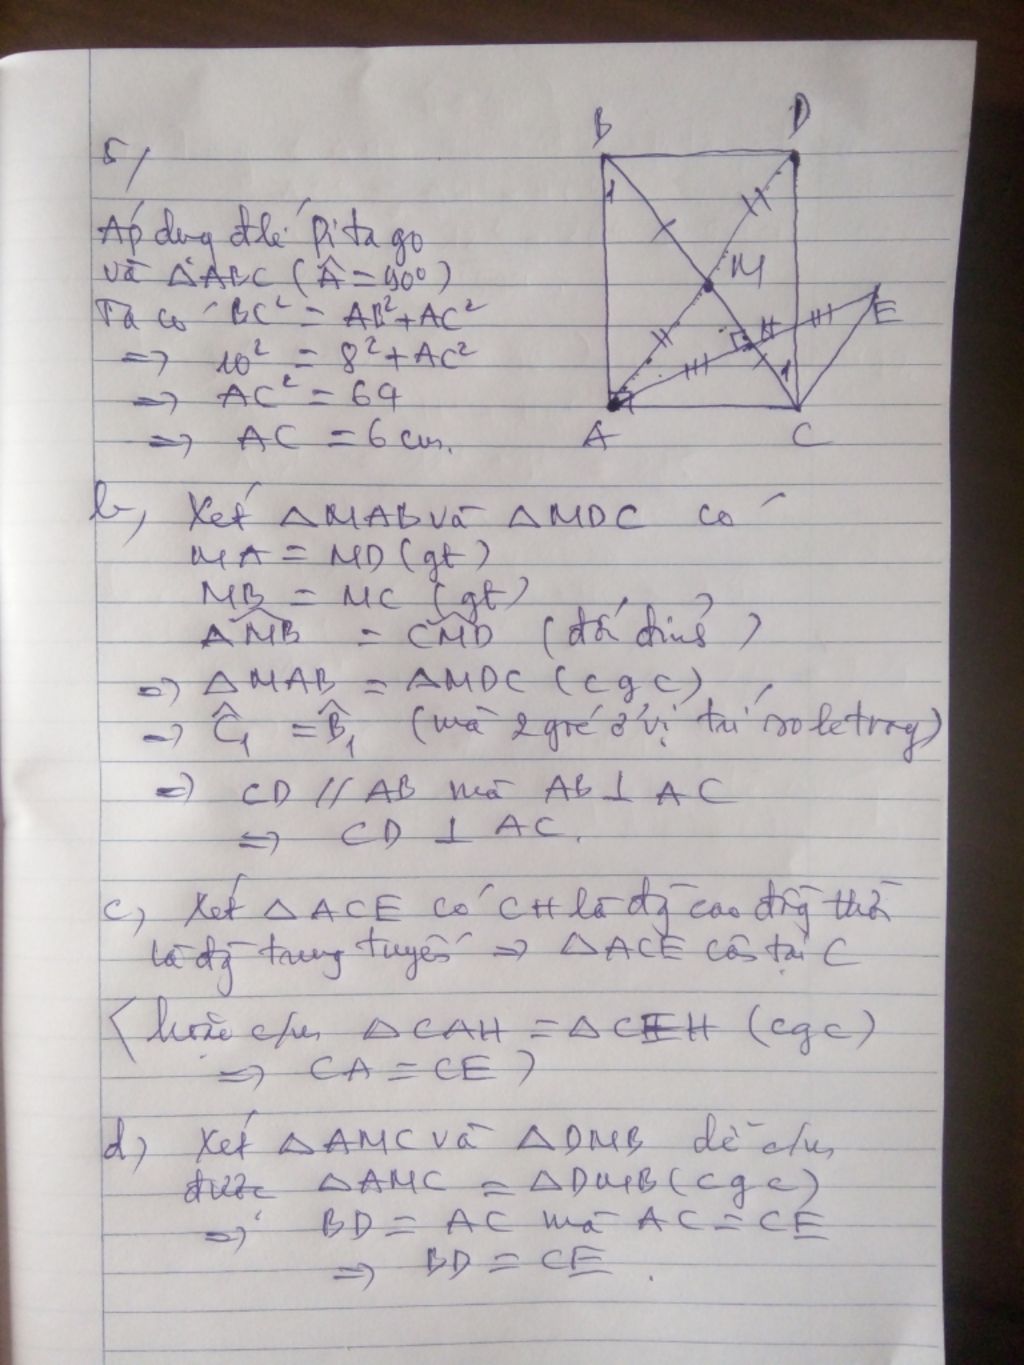 5/
B
D
1
Áp dụng đlí Pitago
và △ABC (Â = 90°)
M
Ta có BC² = AB² + AC²
H
E
=> 10² = 8² + AC²
1
=> AC² = 64
=> AC = 6 cm.
A
C
b, Xét △MAB và △MDC có
MA = MD (gt)
MB = MC (gt)
AMB = CMD (đối đỉnh)
=> △MAB = △MDC (cgc)
=> Ĉ₁ = B̂₁ (mà 2 góc ở vị trí so le trong)
=> CD // AB mà AB ⊥ AC
=> CD ⊥ AC.
c, Xét △ACE có CH là đg cao đồng thời
là đg trung tuyến => △ACE cân tại C
(hoặc c/m △CAH = △CEH (cgc)
=> CA = CE)
d, Xét △AMC và △DMB dễ c/m
được △AMC = △DMB (cgc)
=> BD = AC mà AC = CE
=> BD = CE.